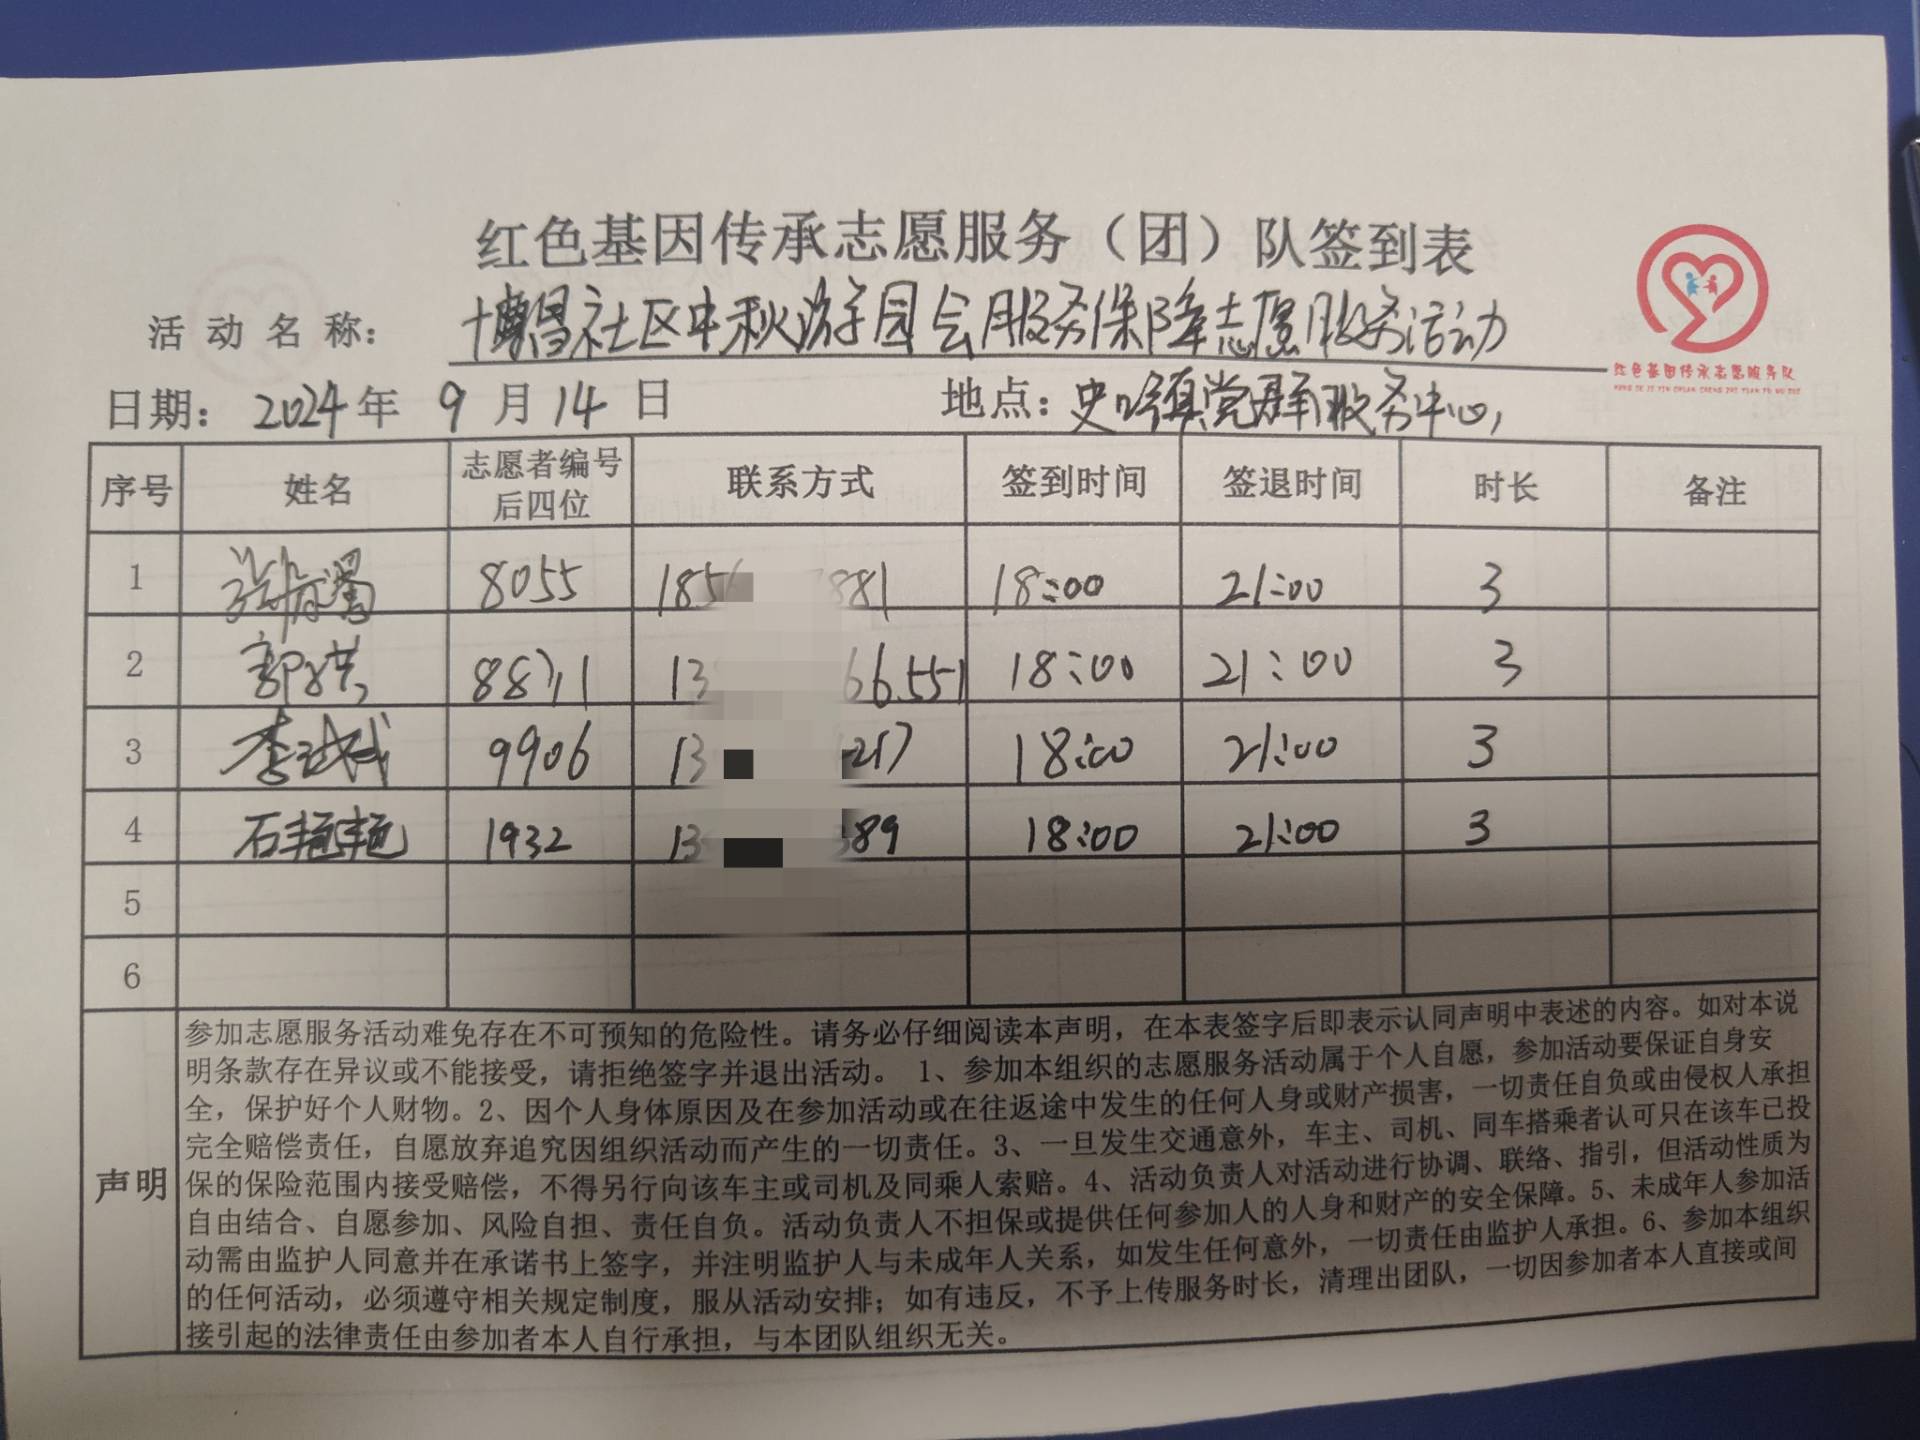 红色基因传承志愿服务（团）队签到表
活动名称： 博昌社区中秋游园会服务保障志愿服务活动
红色基因传承志愿服务队
日期： 2024年 9 月 14 日 地点：史口镇党群服务中心
序号 姓名 志愿者编号后四位 联系方式 签到时间 签退时间 时长 备注
1 张 8055 185 881 18:00 21:00 3
2 郭 8871 13 66.551 18:00 21:00 3
3 李 9906 13 217 18:00 21:00 3
4 石艳艳 1932 13 389 18:00 21:00 3
5
6
声明
参加志愿服务活动难免存在不可预知的危险性。请务必仔细阅读本声明，在本表签字后即表示认同声明中表述的内容。如对本说
明条款存在异议或不能接受，请拒绝签字并退出活动。 1、参加本组织的志愿服务活动属于个人自愿，参加活动要保证自身安
全，保护好个人财物。2、因个人身体原因及在参加活动或在往返途中发生的任何人身或财产损害，一切责任自负或由侵权人承担
完全赔偿责任，自愿放弃追究因组织活动而产生的一切责任。3、一旦发生交通意外，车主、司机、同车搭乘者认可只在该车已投
保的保险范围内接受赔偿，不得另行向该车主或司机及同乘人索赔。4、活动负责人对活动进行协调、联络、指引，但活动性质为
自由结合、自愿参加、风险自担、责任自负。活动负责人不担保或提供任何参加人的人身和财产的安全保障。5、未成年人参加活
动需由监护人同意并在承诺书上签字，并注明监护人与未成年人关系，如发生任何意外，一切责任由监护人承担。6、参加本组织
的任何活动，必须遵守相关规定制度，服从活动安排；如有违反，不予上传服务时长，清理出团队，一切因参加者本人直接或间
接引起的法律责任由参加者本人自行承担，与本团队组织无关。